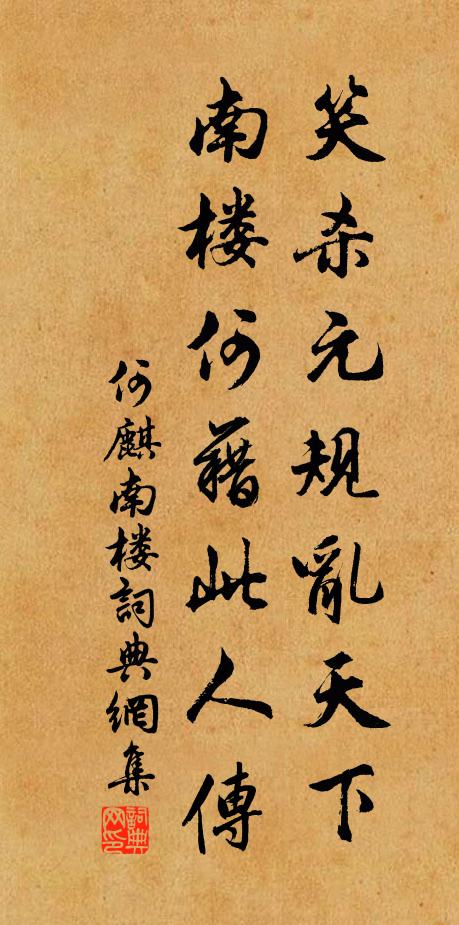 笑杀元規亂天下
南楼何藉此人傳
何麒南楼詞典網集
詞典网印